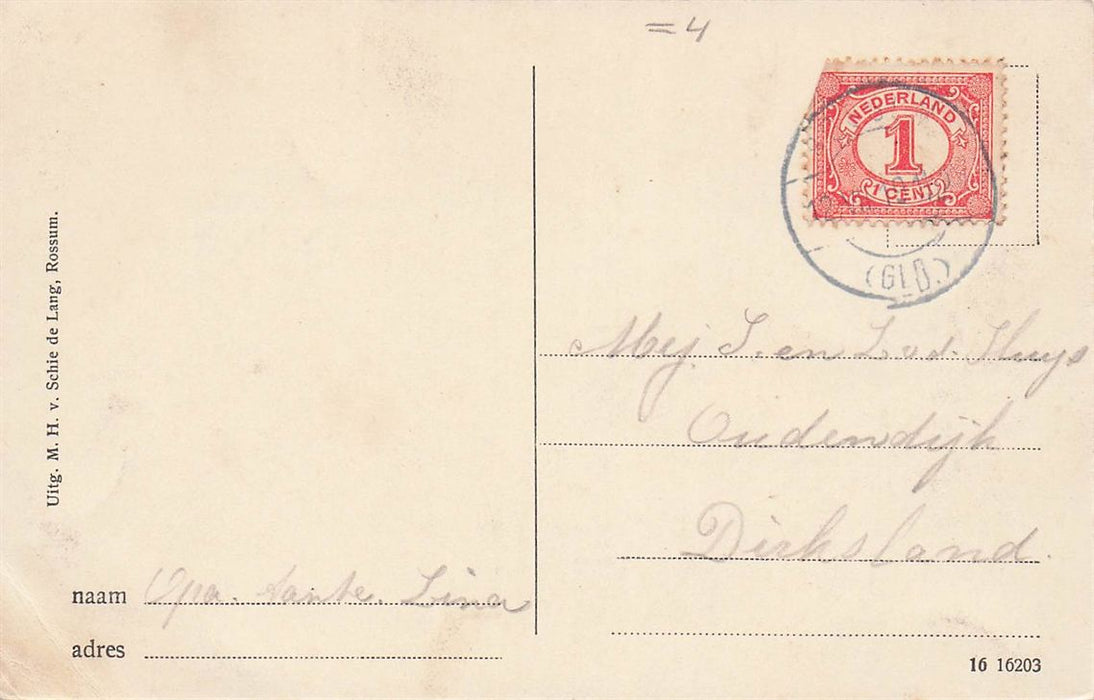 =4
NEDERLAND
1
1 CENT
(GLD.)
Uitg. M. H. v. Schie de Lang, Rossum.
Mej. S. en L. v d. Sluys
Oudendijk
Dirksland.
naam Opa. tante. Lina
adres
16 16203